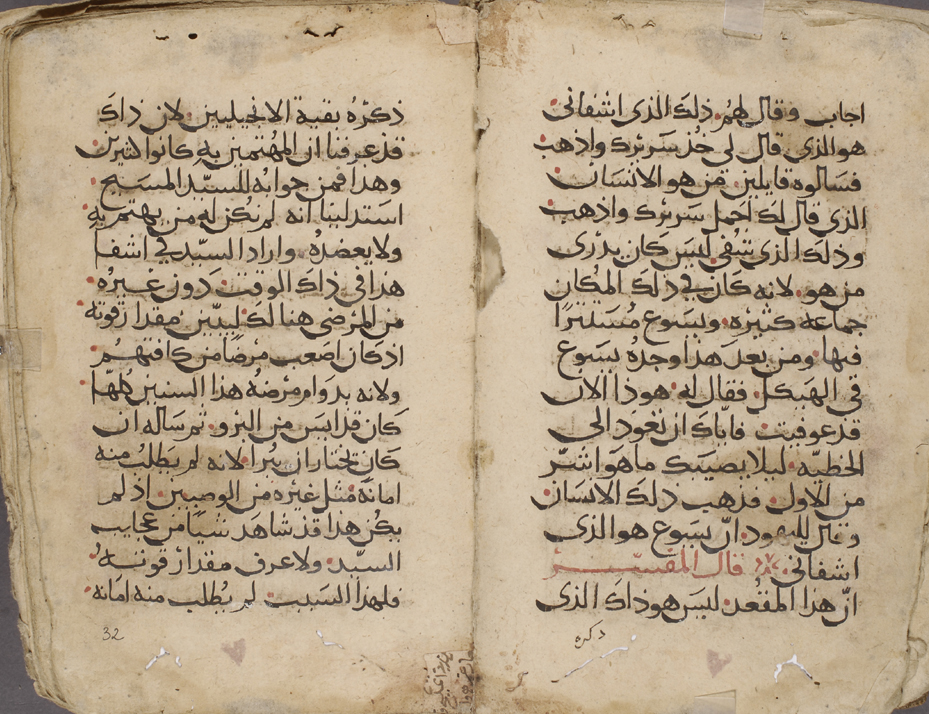 اجاب وقال لهم ذلك الذى اشفانى
هو الذى قال لى خذ سريرك واذهب
فسالوه قايلين من هو الانسان
الذى قال لك احمل سريرك واذهب
وذلك الذى شفى ليس كان يدرى
من هو لانه كان فى ذلك المكان
جماعه كثيره ويسوع مستترا
فيها ومن بعد هذا وجده يسوع
فى الهيكل فقال له هوذا الان
قد عوفيت فاياك ان تعود الى
الخطيه ليلا يصيبك ما هو اشر
من الاول فذهب ذلك الانسان
وقال لليهود ان يسوع هو الذى
اشفانى قال المفسر
ان هذا المقعد ليس هو ذاك الذى
ذكره
ذكره بقية الانجيليين لان ذاك
قد عرفنا ان المهتمين به كانوا كثيرين
وهذا فمن جوابه للسيد المسيح
استدلينا انه لم تكن له من يهتم به
ولا يعضده واراد السيد فى اشفا
هذا فى ذاك الوقت دون غيره
من المرضى هنالك ليبين مقدار قوته
اذ كان اصعب مرضا من كافتهم
ولانه بدوام مرضه هذا السنين كلها
كان قد ايس من البرو ثم ساله ان
كان تختار ان تبرا لانه لم يطلب منه
امانه مثل غيره من الوصبين اذ لم
يكن هذا قد شاهد شيا من عجايب
السيد ولا عرف مقدار قوته
فلهذا السبب لم يطلب منه امانه
32